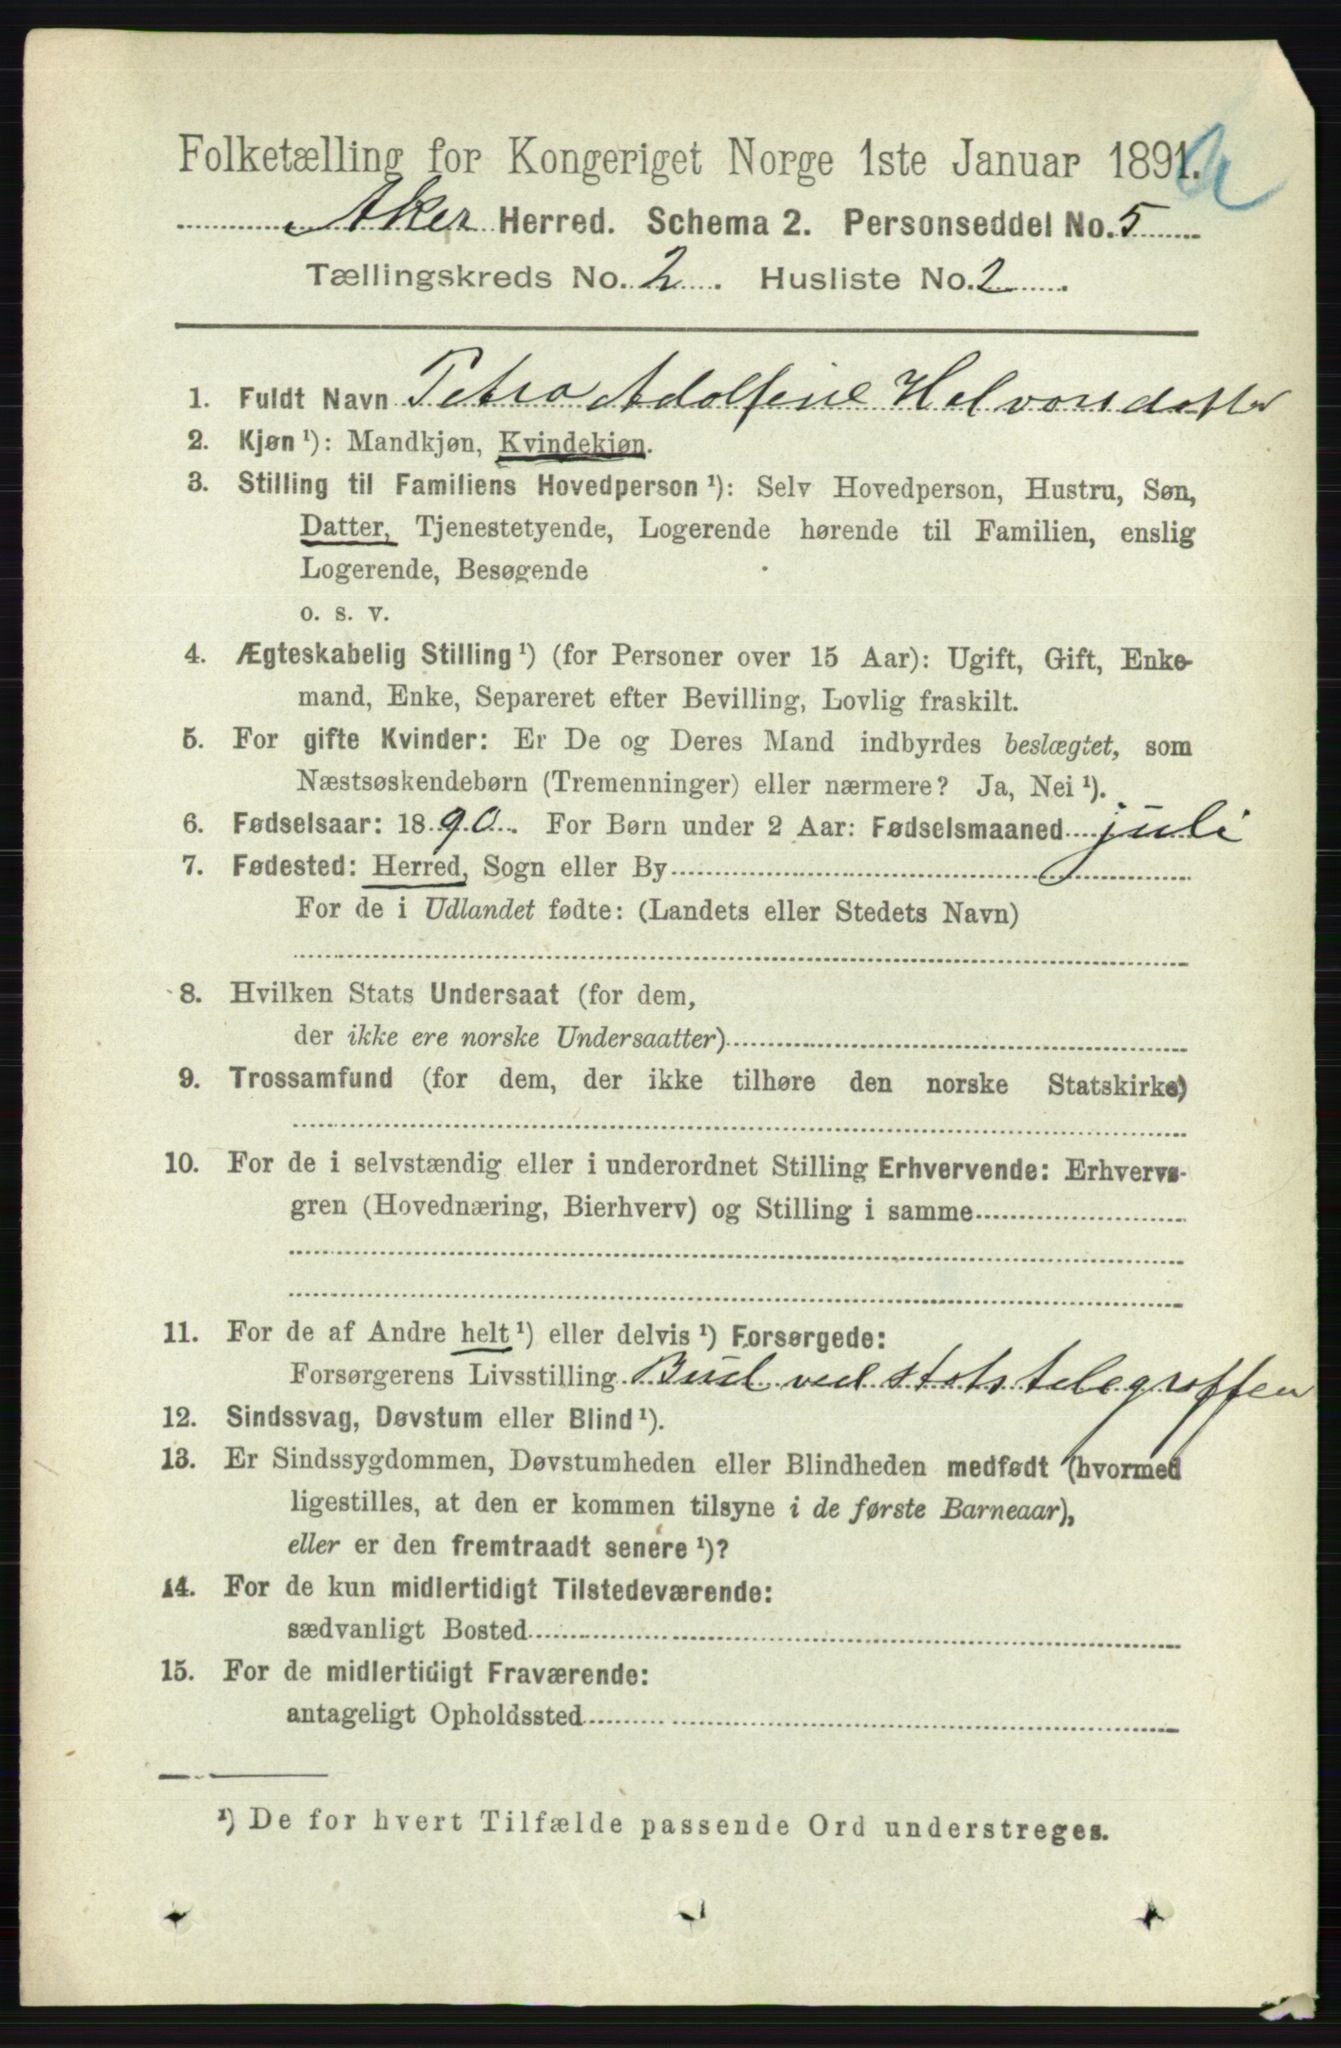 Folketælling for Kongeriget Norge 1ste Januar 1891.
Aker Herred. Schema 2. Personseddel No. 5
Tællingskreds No. 2. Husliste No. 2.
1. Fuldt Navn Petra Adolfine Halvorsdatter
2. Kjøn¹): Mandkjøn, Kvindekjøn.
3. Stilling til Familiens Hovedperson¹): Selv Hovedperson, Hustru, Søn,
Datter, Tjenestetyende, Logerende hørende til Familien, enslig
Logerende, Besøgende
o. s. v.
4. Ægteskabelig Stilling¹) (for Personer over 15 Aar): Ugift, Gift, Enke-
mand, Enke, Separeret efter Bevilling, Lovlig fraskilt.
5. For gifte Kvinder: Er De og Deres Mand indbyrdes beslægtet, som
Næstsøskendebørn (Tremenninger) eller nærmere? Ja, Nei¹).
6. Fødselsaar: 1890. For Børn under 2 Aar: Fødselsmaaned juli
7. Fødested: Herred, Sogn eller By
For de i Udlandet fødte: (Landets eller Stedets Navn)
8. Hvilken Stats Undersaat (for dem,
der ikke ere norske Undersaatter)
9. Trossamfund (for dem, der ikke tilhøre den norske Statskirke)
10. For de i selvstændig eller i underordnet Stilling Erhvervende: Erhvervs-
gren (Hovednæring, Bierhverv) og Stilling i samme
11. For de af Andre helt¹) eller delvis¹) Forsørgede:
Forsørgerens Livsstilling Bud ved statstelegraffen
12. Sindssvag, Døvstum eller Blind¹).
13. Er Sindssygdommen, Døvstumheden eller Blindheden medfødt (hvormed
ligestilles, at den er kommen tilsyne i de første Barneaar),
eller er den fremtraadt senere¹)?
14. For de kun midlertidigt Tilstedeværende:
sædvanligt Bosted
15. For de midlertidigt Fraværende:
antageligt Opholdssted
¹) De for hvert Tilfælde passende Ord understreges.